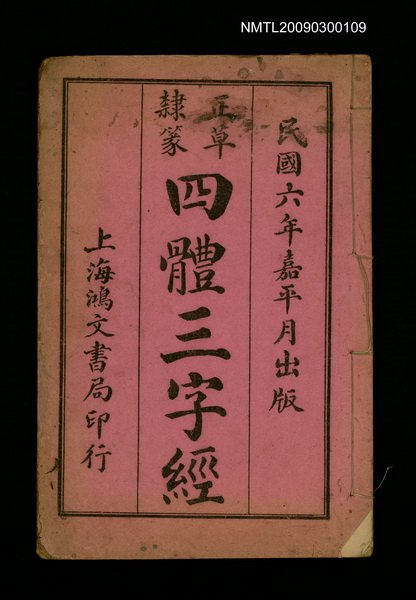 NMTL20090300109
民國六年嘉平月出版
正草
隸篆
四體三字經
上海鴻文書局印行